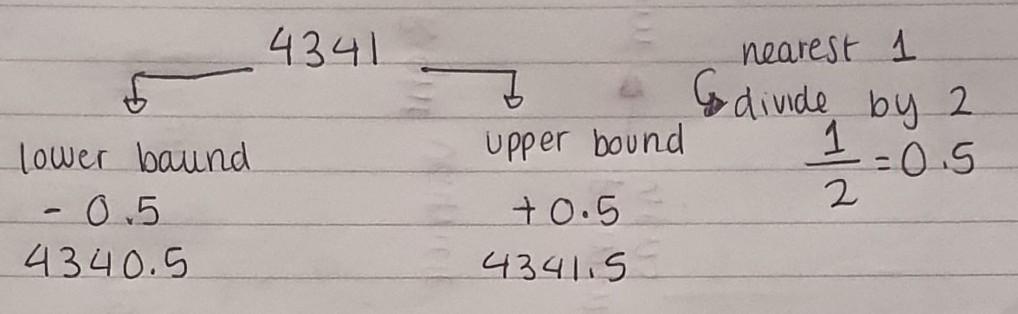 4341
nearest 1
divide by 2
1/2 = 0.5
lower baund
- 0.5
4340.5
upper bound
+0.5
4341.5